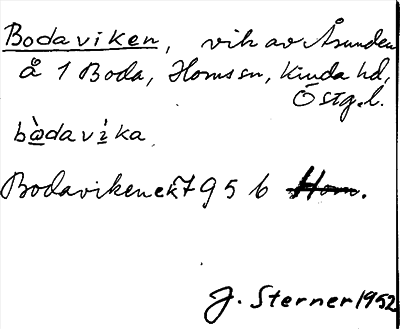 Bodaviken, vik av Åsunden
å 1 Boda, Horns sn, Kinda hd,
Östg.l.
bàdavìka
Bodaviken ek 795 b Horn.
J. Sterner 1952